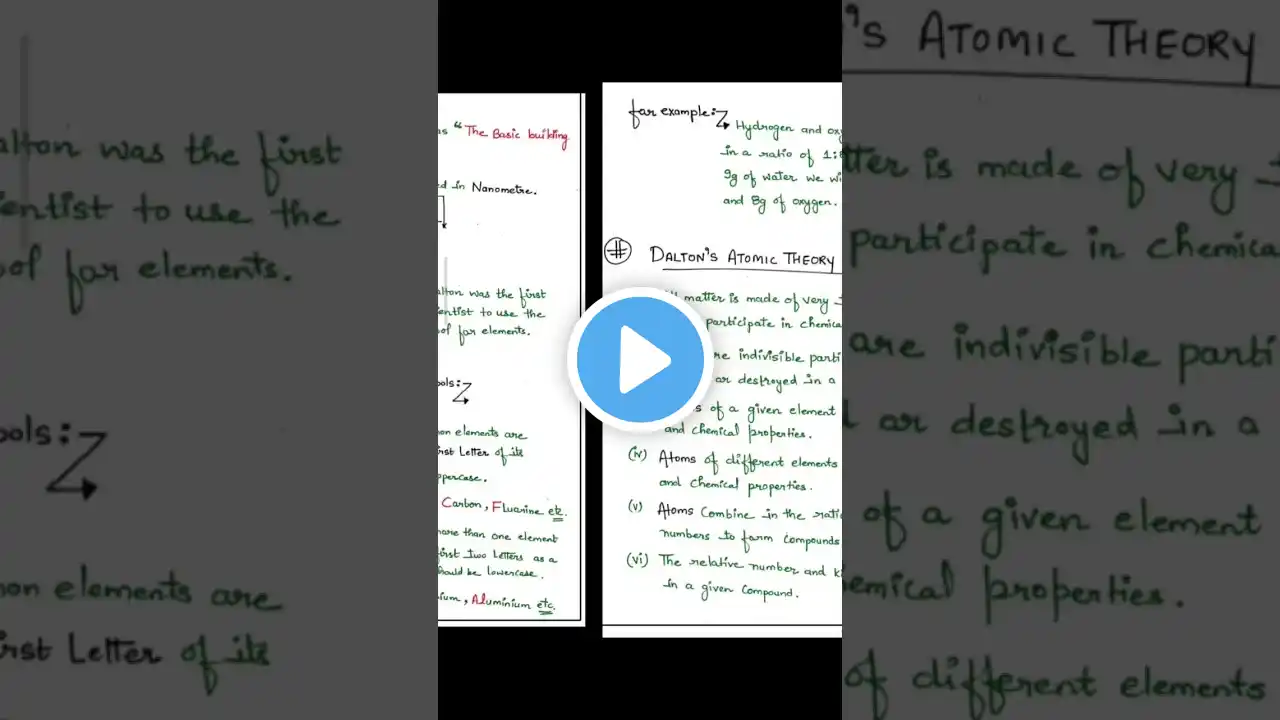 'S ATOMIC THEORY
alton was the first
entist to use the
ol far elements.
ools:
non elements are
irst Letter of its
as "The Basic building
ed in Nanometre.
alton was the first
entist to use the
ol far elements.
ools:
on elements are
irst Letter of its
ppercase.
Carbon, Fluorine etc.
more than one element
first two letters as a
should be lowercase.
ium, Aluminium etc.
far example:
Hydrogen and oxy
in a ratio of 1:8
9g of water we wi
and 8g of oxygen.
DALTON'S ATOMIC THEORY
matter is made of very
participate in chemica
re indivisible parti
ar destroyed in a
s of a given element
and chemical properties.
(iv) Atoms of different elements
and chemical properties.
(v) Atoms Combine in the ratio
numbers to farm compounds
(vi) The relative number and k
in a given compound.
tter is made of very
participate in chemica
are indivisible parti
ar destroyed in a
of a given element
emical properties.
of different elements